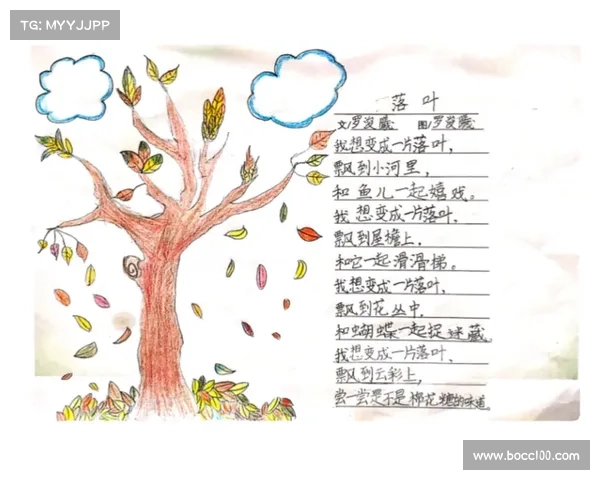 TG: MYYJJPP
落叶
文/罗浚宸 图/罗浚宸
我想变成一片落叶，
飘到小河里，
和鱼儿一起嬉戏。
我想变成一片落叶，
飘到屋檐上，
和它一起滑滑梯。
我想变成一片落叶，
飘到花丛中，
和蝴蝶一起捉迷藏。
我想变成一片落叶，
飘到云彩上，
尝一尝是不是棉花糖的味道。
www.bocc100.com